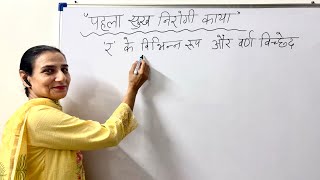 "पहला सुख निरोगी काया"
'र' के विभिन्न रूप और वर्ण विच्छेद